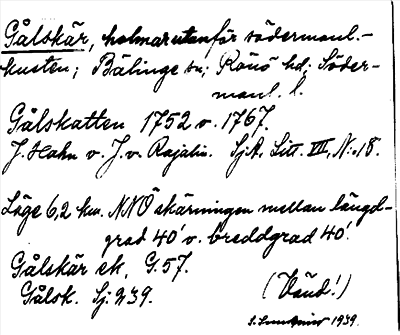 Gålskär, holmar utanför södermanl.-
kusten; Bälinge sn; Rönö hd; Söder-
manl. l.
Gålskatten 1752 v. 1767.
J. Hahn v. J. v. Rajalin. SjA, Litt. VII, N:o 18.
Läge 6,2 km. NNÖ skärningen mellan längd-
grad 40' v. breddgrad 40'.
Gålskär ek. G. 57.
Gålsk. Sj. 239.
(Vänd!)
1939.